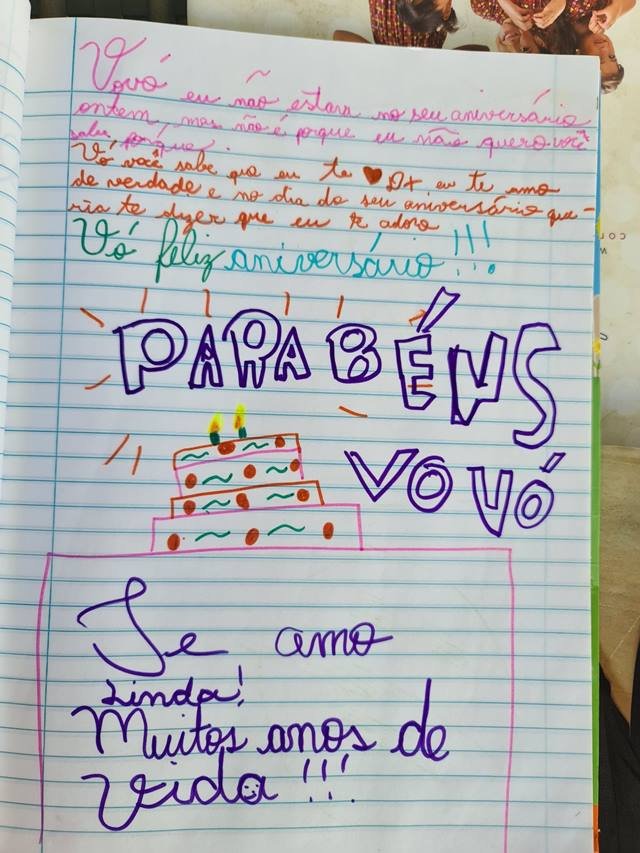 Vovó eu não estava no seu aniversário
ontem, mas não é porque eu não quero você
sabe porque.
Vó você sabe que eu te ❤ eu te amo
de verdade e no dia do seu aniversário que-
ria te dizer que eu te adoro
Vó feliz aniversário!!!
PARABÉNS
VOVÓ
Te amo
Linda!
Muitos anos de
vida!!!